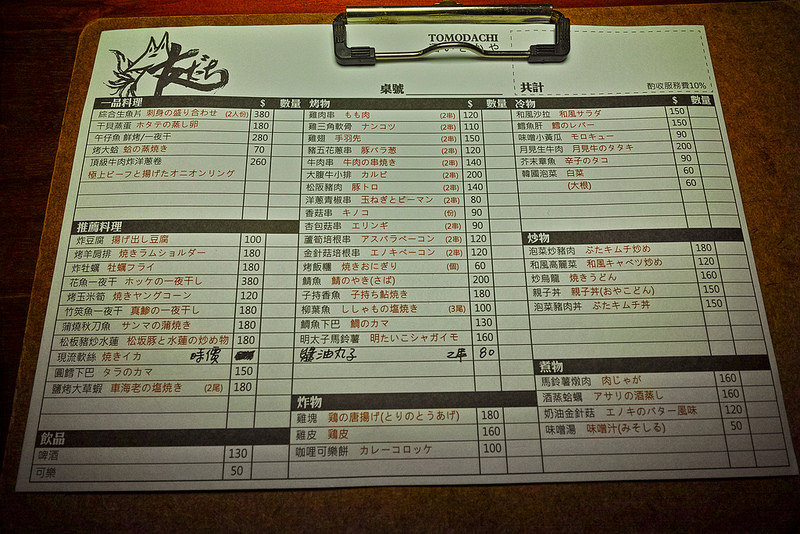 TOMODACHI
友だち
桌號
共計
酌收服務費10%
一品料理 $ 數量
綜合生魚片 刺身の盛り合わせ (2人份) 380
干貝蒸蛋 ホタテの蒸し卵 180
午仔魚 鮮烤/一夜干 280
烤大蛤 蛤の蒸焼き 70
頂級牛肉炸洋蔥卷 260
極上ビーフと揚げたオニオンリング
推薦料理
炸豆腐 揚げ出し豆腐 100
烤羊肩排 焼きラムショルダー 180
炸牡蠣 牡蠣フライ 180
花魚一夜干 ホッケの一夜干し 380
烤玉米筍 焼きヤングコーン 120
竹筴魚一夜干 真鯵の一夜干し 180
蒲燒秋刀魚 サンマの蒲焼き 180
松板豬炒水蓮 松坂豚と水蓮の炒め物 180
現流軟絲 焼きイカ 時價
圓鱈下巴 タラのカマ 150
鹽烤大草蝦 車海老の塩焼き (2尾) 180
飲品
啤酒 130
可樂 50
烤物 $ 數量
雞肉串 もも肉 (2串) 120
雞三角軟骨 ナンコツ (2串) 110
雞翅 手羽先 (2串) 150
豬五花蔥串 豚バラ葱 (2串) 120
牛肉串 牛肉の串焼き (2串) 140
大腹牛小排 カルビ (2串) 200
松阪豬肉 豚トロ (2串) 140
洋蔥青椒串 玉ねぎとピーマン (2串) 80
香菇串 キノコ (份) 90
杏包菇串 エリンギ (2串) 90
蘆筍培根串 アスパラベーコン (2串) 120
金針菇培根串 エノキベーコン (2串) 120
烤飯糰 焼きおにぎり (個) 60
鯖魚 鯖のやき(さば) 200
子持香魚 子持ち鮎焼き 180
柳葉魚 ししゃもの塩焼き (3尾) 100
鯛魚下巴 鯛のカマ 130
明太子馬鈴薯 明たいこシャガイモ 160
醬油丸子 2串 80
炸物
雞塊 鶏の唐揚げ(とりのとうあげ) 180
雞皮 鶏皮 160
咖哩可樂餅 カレーコロッケ 100
冷物 $ 數量
和風沙拉 和風サラダ 150
鱈魚肝 鱈のレバー 150
味噌小黃瓜 モロキュー 90
月見生牛肉 月見牛のタタキ 200
芥末章魚 辛子のタコ 90
韓國泡菜 白菜 60
(大根) 60
炒物
泡菜炒豬肉 ぶたキムチ炒め 180
和風高麗菜 和風キャベツ炒め 120
炒烏龍 焼きうどん 160
親子丼 親子丼(おやこどん) 150
泡菜豬肉丼 ぶたキムチ丼 150
煮物
馬鈴薯燉肉 肉じゃが 160
酒蒸蛤蠣 アサリの酒蒸し 160
奶油金針菇 エノキのバター風味 120
味噌湯 味噌汁(みそしる) 50